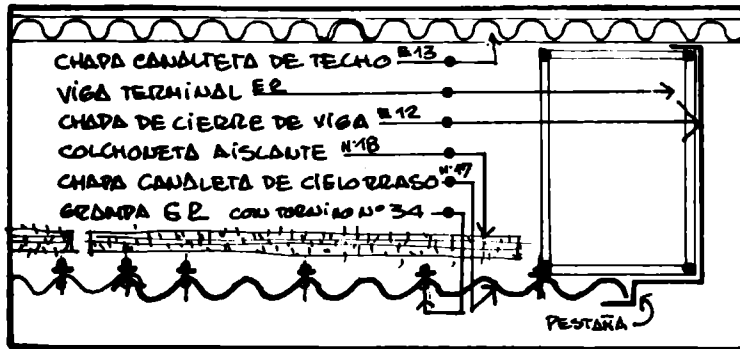 CHAPA CANALTETA DE TECHO Nº13
VIGA TERMINAL ER
CHAPA DE CIERRE DE VIGA Nº12
COLCHONETA AISLANTE Nº18
CHAPA CANALETA DE CIELORRASO Nº17
GRAMPA GR CON TORNILLO Nº 34
PESTAÑA